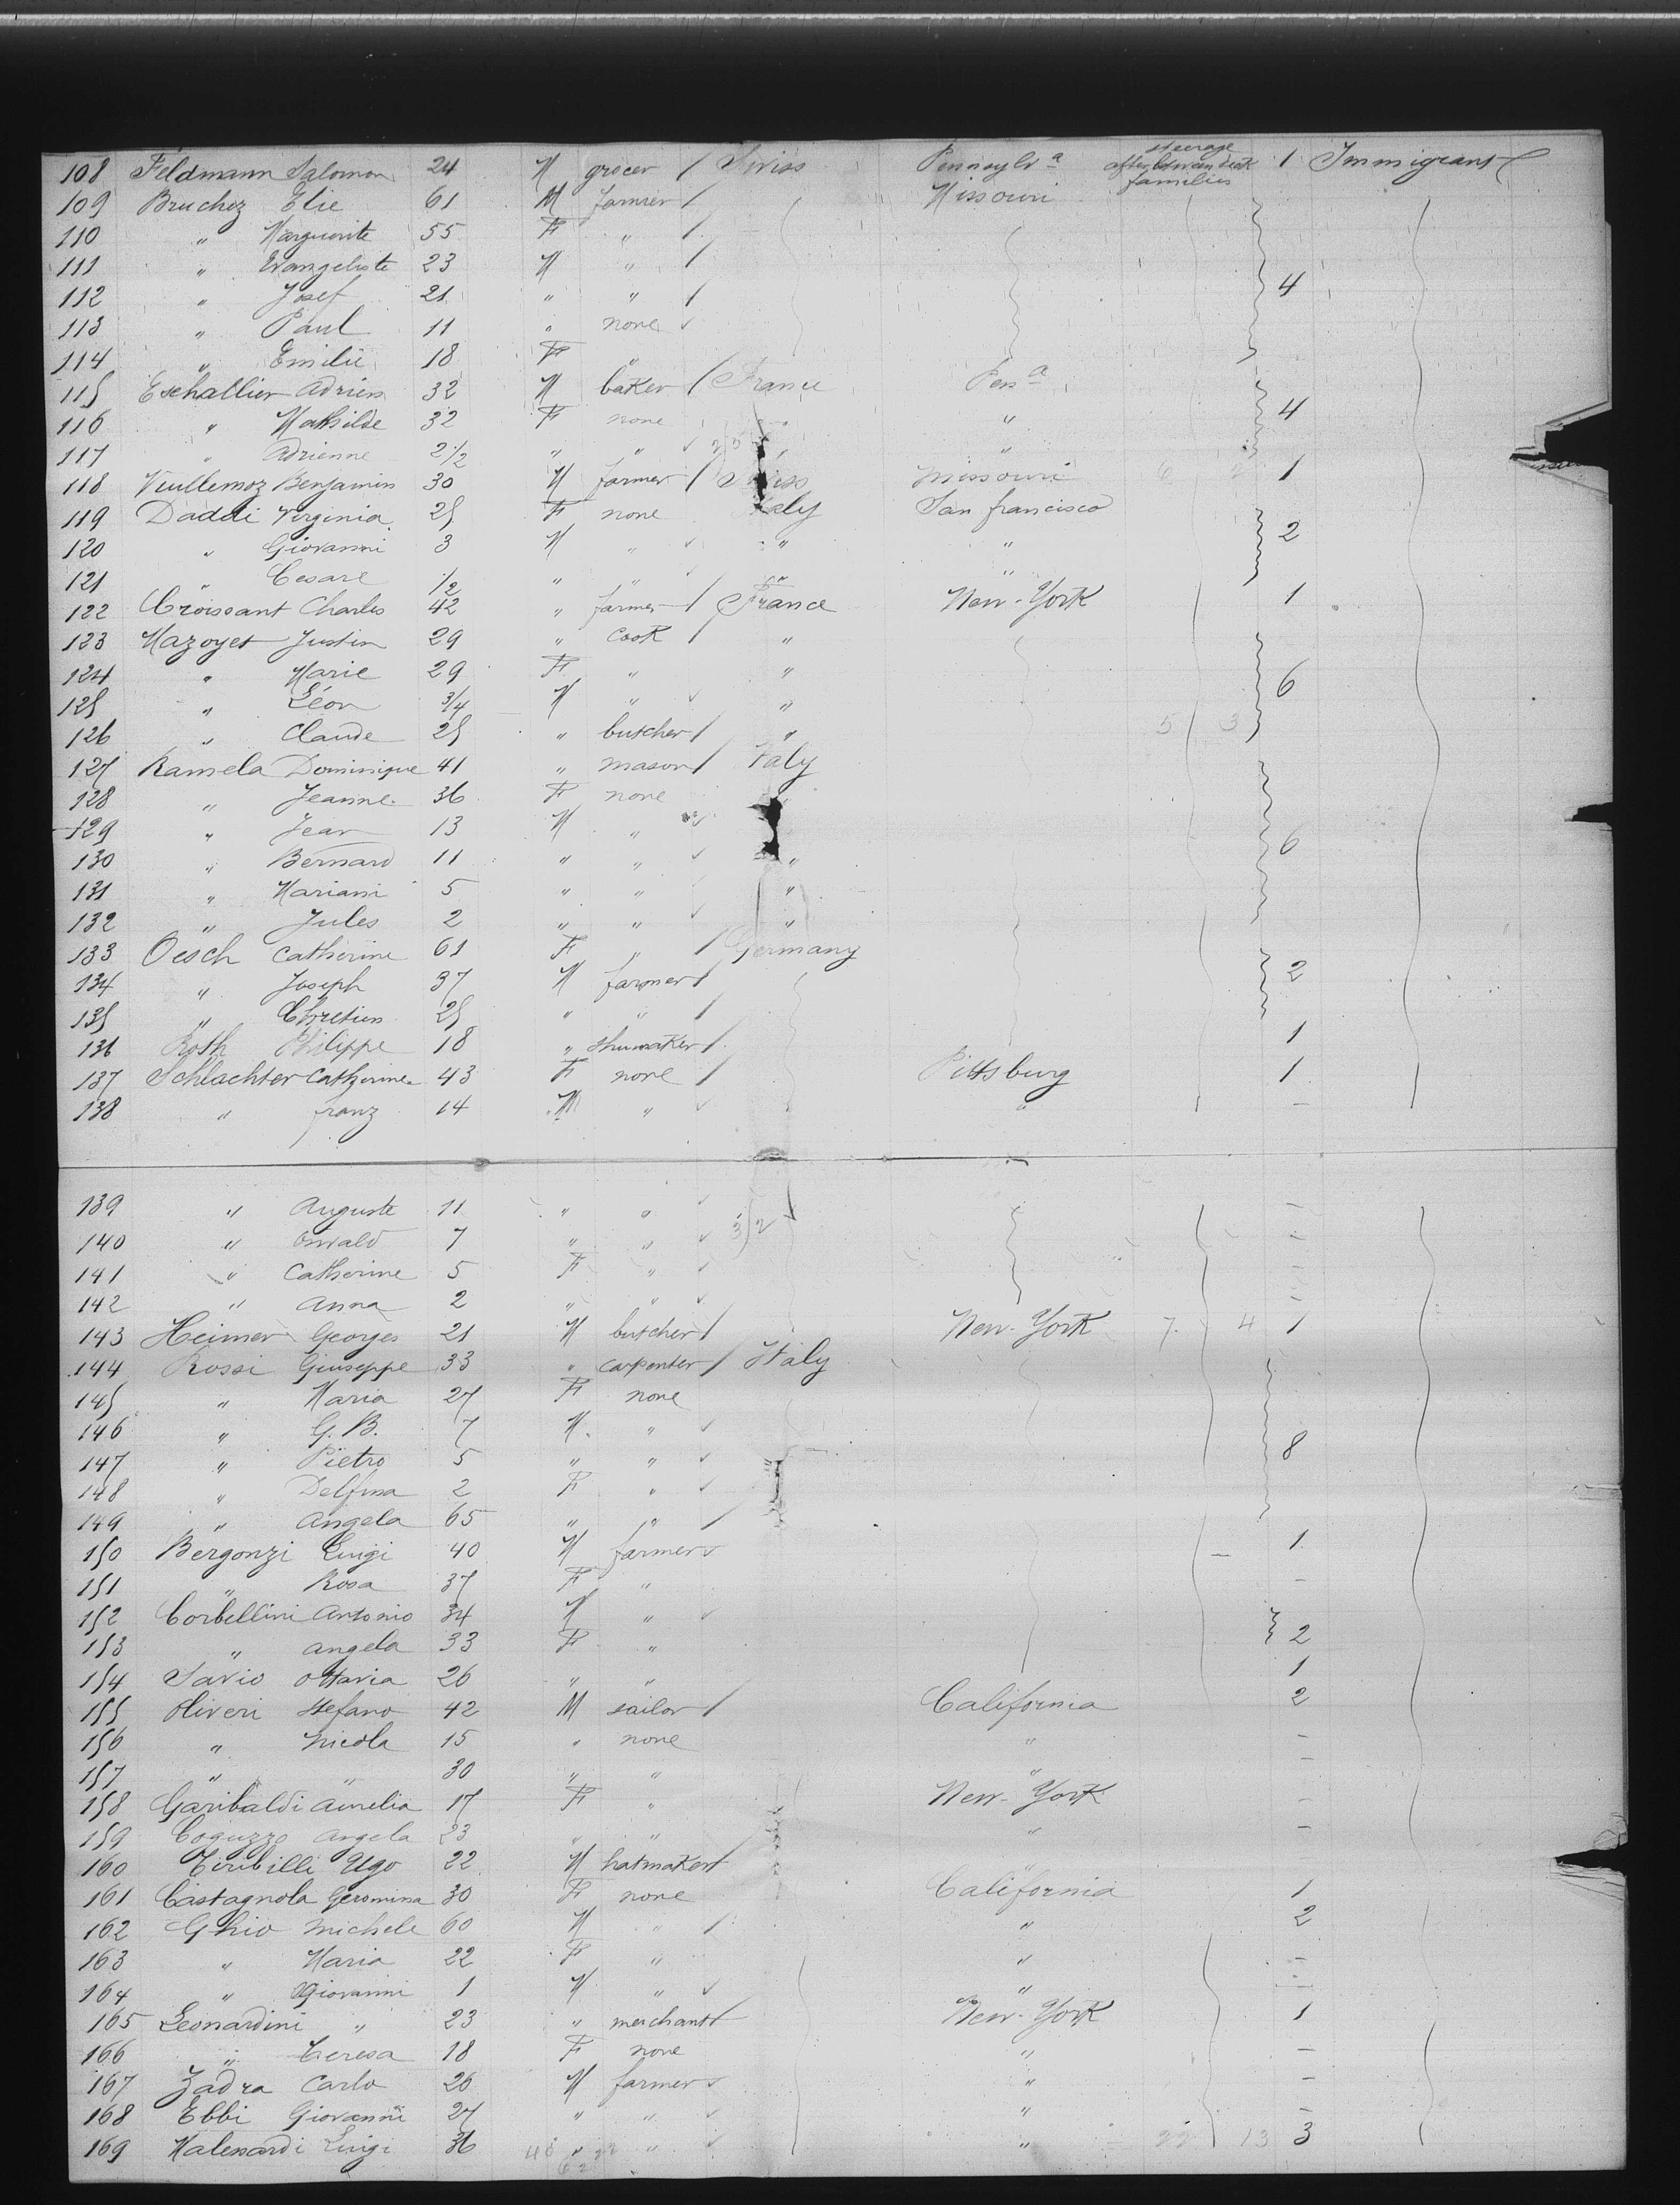 108 Feldmann Salomon 24 M grocer / Swiss Pennsylva steerage after between deck families 1 Immigrants
109 Bruchez Elie 61 M farmer / Missouri
110 " Marguerite 55 F " /
111 " Evangeliste 23 M " /
112 " Josef 21 " " / 4
113 " Paul 11 " none ✓
114 " Emilie 18 F "
115 Eschallier Adrien 32 M baker / France Pena
116 " Mathilde 32 F none " 4
117 " Adrienne 2 1/2 " " ✓ "
118 Vuillemoz Benjamin 30 M farmer / Swiss Missouri 6 2 1
119 Daddi Virginia 25 F none Italy San francisco
120 " Giovanni 3 M " ✓ " " 2
121 " Cesare 1/2 " " ✓ " "
122 Croissant Charles 42 " farmer / France New-York 1
123 Mazoyer Justin 29 " cook / "
124 " Marie 29 F " " 6
125 " Léon 3/4 M " ✓ "
126 " Claude 25 " butcher / " 5 3
127 Ramela Dominique 41 " mason / Italy
128 " Jeanne 36 F none
129 " Jean 13 M " ✓
130 " Bernard 11 " " ✓ " 6
131 " Mariani 5 " " ✓ "
132 " Jules 2 " " ✓ "
133 Oesch Catherine 61 F " / Germany
134 " Joseph 37 M farmer / 2
135 " Chretien 25 " " /
136 Roth Philippe 18 " shumaker / 1
137 Schlachter Catherine 43 F none / Pittsburg 1
138 " franz 14 M " ✓ " –
139 " Auguste 11 " " ✓ –
140 " Oswald 7 " " ✓ 3 2 –
141 " Catherine 5 F " ✓ –
142 " Anna 2 " " ✓ –
143 Heimer Georges 21 M butcher / New-York 7 4 1
144 Rossi Giuseppe 33 " carpenter / Italy
145 " Maria 27 F none
146 " G. B. 7 M " ✓
147 " Pietro 5 " " ✓ " 8
148 " Delfina 2 F " ✓
149 " Angela 65 " " /
150 Bergonzi Luigi 40 M farmer ✓ – 1
151 " Rosa 37 F " –
152 Corbellini Antonio 34 M " ✓
153 " Angela 33 F " 2
154 Savio Ottavia 26 " " 1
155 Oliveri Stefano 42 M sailor / California 2
156 " Nicola 15 " none " –
157 " " 30 " " " –
158 Garibaldi Amelia 17 F " New-York –
159 Coguzzo Angela 23 " " " –
160 Tiribilli Ugo 22 M hatmaker / "
161 Castagnola Geromina 30 F none California 1
162 Ghio Michele 60 M " / " 2
163 " Maria 22 F " " –
164 " Giovanni 1 M " ✓ " –
165 Leonardini " 23 " merchant / New-York 1
166 " Teresa 18 F none " –
167 Zadra Carlo 26 M farmer ✓ " –
168 Ebbi Giovanni 27 " " ✓ " –
169 Malenardi Luigi 36 " " ✓ " 22 13 3